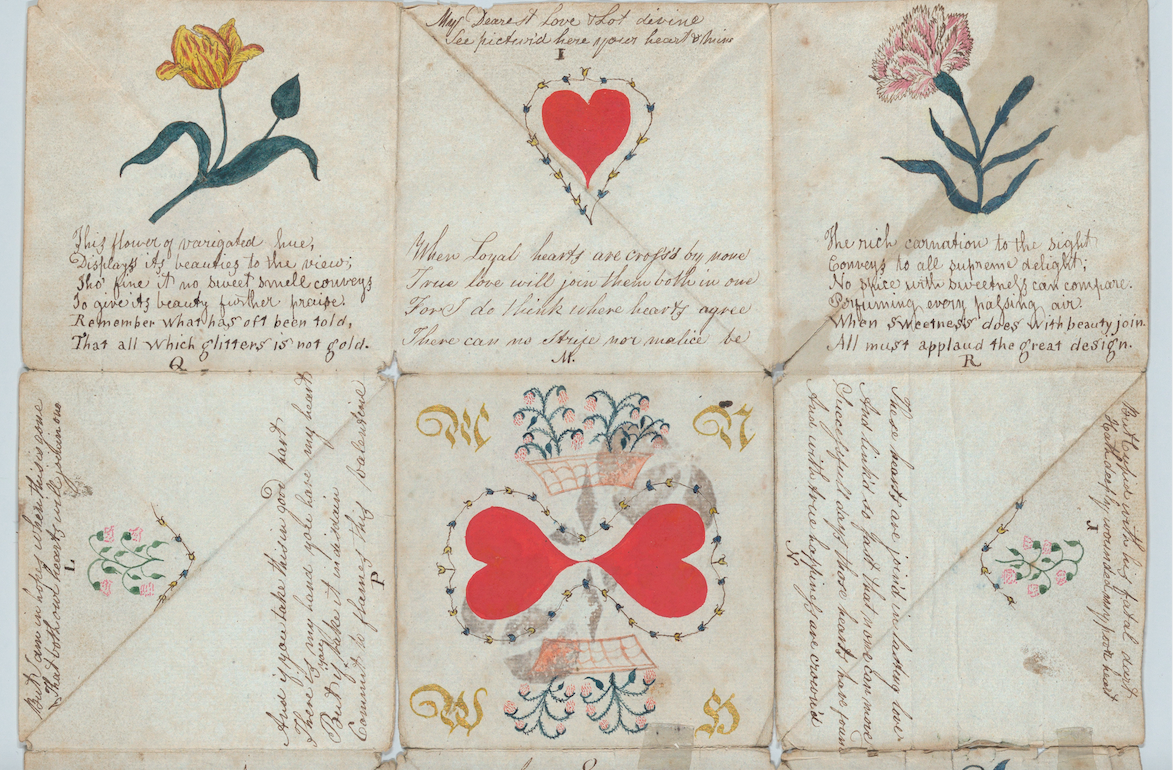 My Dearest Love & Lot divine
See pictur'd here your heart & mine
I
This flower of varigated hue,
Displays its beauties to the view;
Tho' fine it no sweet smell conveys
To give its beauty further praise.
Remember what has oft been told,
That all which glitters is not gold.
Q
When Loyal hearts are cross'd by none
True love will join them both in one
For I do think where hearts agree
There can no Strife nor malice be
M.
The rich carnation to the sight
Conveys to all supreme delight;
No spice with sweetness can compare.
Perfuming every passing air.
When sweetness does with beauty join.
All must applaud the great design.
R
But I am in hopes when this is gone
That both our hearts will join in one
L
And if you take this in good part
There is my hand you have my heart
But if you take it unkind
Commit to flames this valentine
P
M
N
W
H
These hearts are joind in lasting love
And link'd so fast that none can move
Successful days those hearts have found
And with true happiness are crown'd
N
But Cupid with his fatal dart
Hath deeply wounded my poor heart
J